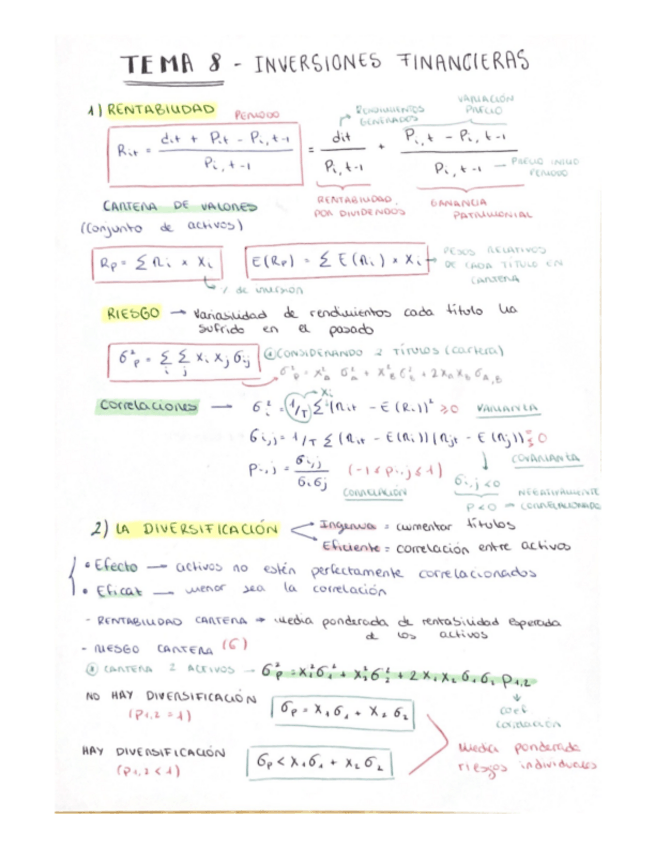 TEMA 8 - INVERSIONES FINANCIERAS
1) RENTABILIDAD
PERIODO
RENDIMIENTOS GENERADOS
VARIACIÓN PRECIO
Rit = (dit + Pit - Pi,t-1) / Pi,t-1 = dit / Pi,t-1 + (Pi,t - Pi,t-1) / Pi,t-1 — PRECIO INICIO PERIODO
RENTABILIDAD POR DIVIDENDOS
GANANCIA PATRIMONIAL
CARTERA DE VALORES
(Conjunto de activos)
Rp = Σ Ri × Xi
% de inversión
E(Rp) = Σ E(Ri) × Xi
PESOS RELATIVOS DE CADA TÍTULO EN CARTERA
RIESGO → Variabilidad de rendimientos cada título ha
sufrido en el pasado
σ²p = Σi Σj Xi Xj σij
CONSIDERANDO 2 TÍTULOS (cartera)
σ²p = X²A σ²A + X²B σ²B + 2XA XB σA,B
Correlaciones → σ²i = 1/T Σ (Rit - E(Ri))² ≥0 VARIANZA
Xi
σi,j = 1/T Σ (Rit - E(Ri))(Rjt - E(Rj)) ≶ 0
COVARIANZA
Pi,j = σi,j / σiσj (-1 ≤ Pi,j ≤ 1)
CORRELACIÓN
σi,j <0
P<0 → NEGATIVAMENTE CORRELACIONADO
2) LA DIVERSIFICACIÓN
Ingenua = aumentar títulos
Eficiente = correlación entre activos
• Efecto → activos no estén perfectamente correlacionados
• Eficaz → menor sea la correlación
- RENTABILIDAD CARTERA → Media ponderada de rentabilidad esperada
de los activos
- RIESGO CARTERA (σ)
CARTERA 2 ACTIVOS → σ²p = X²1σ²1 + X²2σ²2 + 2X1X2σ1σ2 P1,2
coef correlación
NO HAY DIVERSIFICACIÓN
(P1,2 = 1)
σp = X1σ1 + X2σ2
HAY DIVERSIFICACIÓN
(P1,2 < 1)
σp < X1σ1 + X2σ2
Media ponderada
riesgos individuales